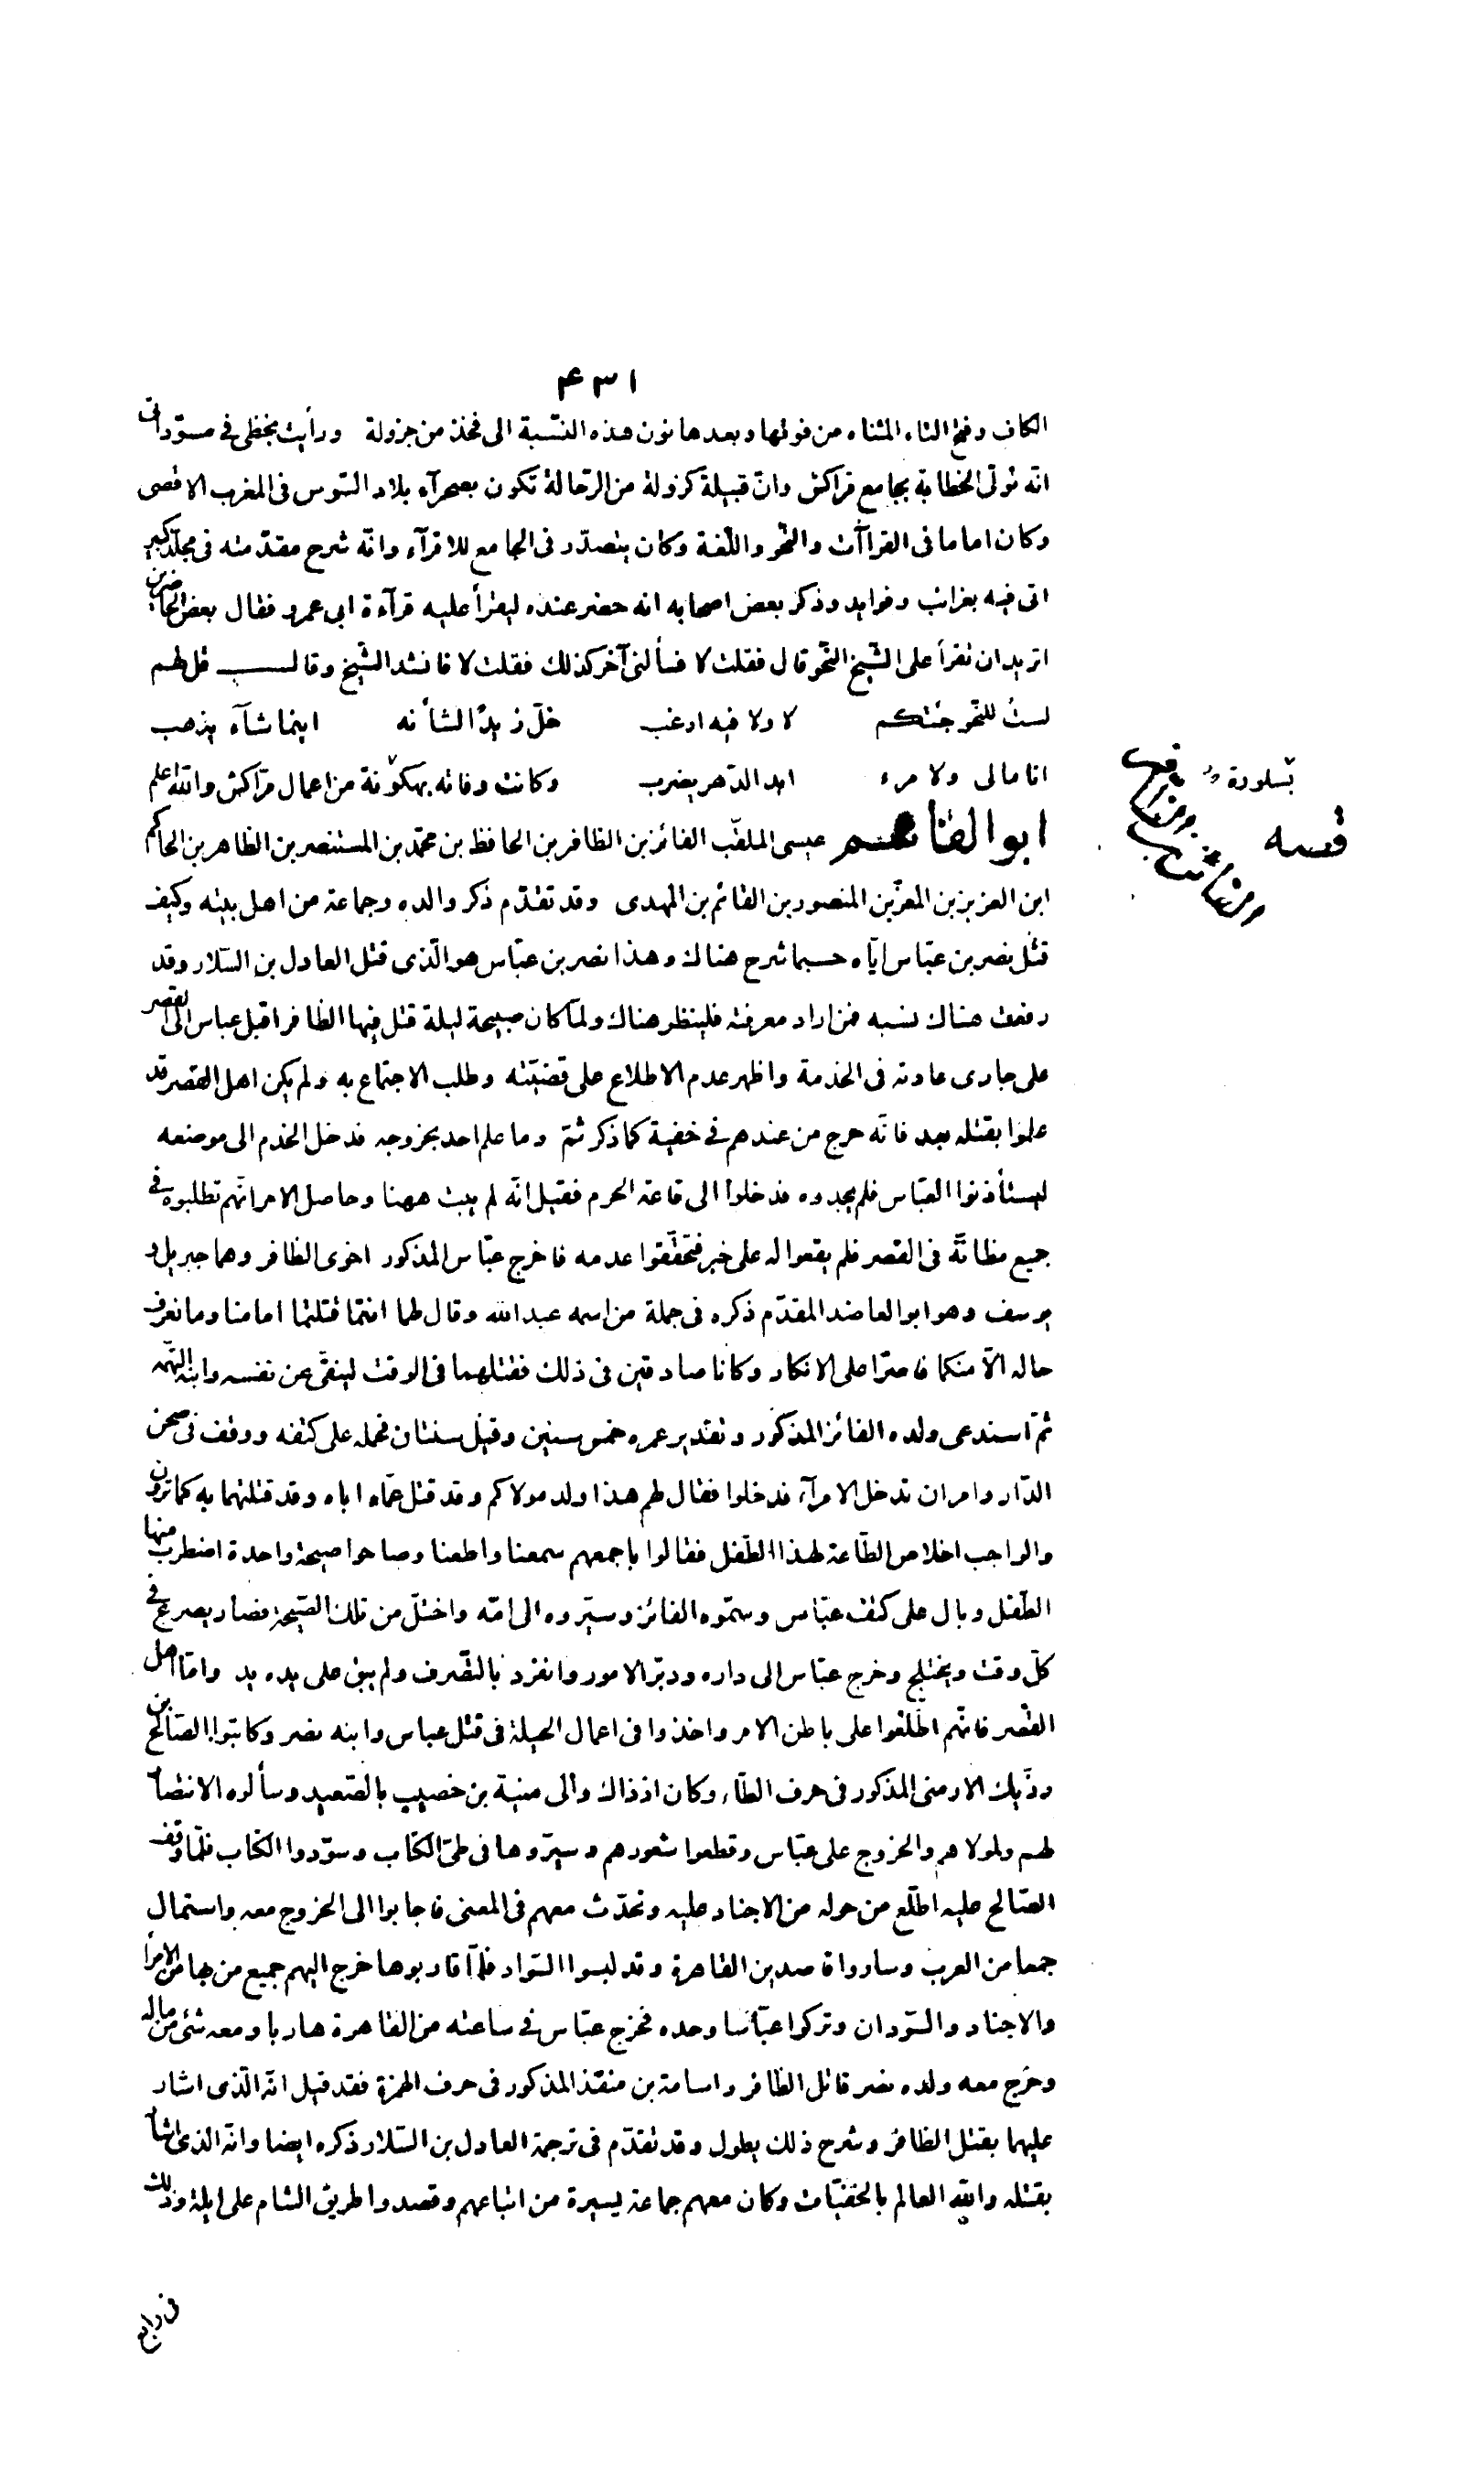 ۴۳۱
الكاف وفتح التاء المثناه من فوقها وبعدها نون هذه النّسبة الى فخذ من جزولة ورأيت بخطى فى مسوّداتى
انّه تولّى الخطابة بجامع مرّاكش وانّ قبيلة كزولة من الرّحالة تكون بصحرآء بلاد السّوس فى المغرب الاقصى
وكان اماما فى القراآت والنّحو واللّغة وكان يتصدّر فى الجامع للاقرآء وانّه شرح مقدّمته فى مجلّد كبير
اتى فيه بغرائب وفوايد وذكر بعض اصحابه انه حضر عنده ليقرأ عليه قرآءة ابى عمرو فقال بعض الحاضرين
اتريد ان تقرأ على الشّيخ النّحو قال فقلت لا فسألنى آخر كذلك فقلت لا فانشد الشّيخ وقال قل لهم
لست للنّحو جئتكم لا ولا فيه ارغب خلّ زيدًا لشأنه اينما شآء يذهب
انا مالى ولامرء ابد الدّهر يضرب وكانت وفاته بهكوّنة من اعمال مرّاكش والله اعلم
ابو القاسم عيسى الملقّب الفائز بن الظافر بن الحافظ بن محمّد بن المستنصر بن الظاهر بن الحاكم
ابن العزيز بن المعزّ بن المنصور بن القائم بن المهدى وقد تقدّم ذكر والده وجماعة من اهل بيته وكيف
قتل نصر بن عبّاس ايّاه حسبما شرح هناك وهذا نصر بن عبّاس هو الّذى قتل العادل بن السّلار وقد
رفعت هناك نسبه فمن اراد معرفته فلينظر هناك ولمّا كان صبيحة ليلة قتل فيها الظافر اقبل عباس الى القصر
على جارى عادته فى الخدمة واظهر عدم الاطلاع على قضيّته وطلب الاجتماع به ولم يكن اهل القصر قد
علموا بقتله بعد فانّه خرج من عندهم فى خفية كما ذكر ثمّ وما علم احد بخروجه فدخل الخدم الى موضعه
ليستأذنوا العبّاس فلم يجدوه فدخلوا الى قاعة الحرم فقيل انّه لم يبت ههنا وحاصل الامر انّهم تطلبوه فى
جميع مظانّه فى القصر فلم يقعوا له على خبر فتحقّقوا عدمه فاخرج عبّاس المذكور اخوى الظافر وهما جبريل و
يوسف وهو ابو العاضد المقدّم ذكره فى جملة من اسمه عبد الله وقال لهما انتما قتلتما امامنا وما نعرف
حاله الّا منكما فاصرّا على الانكار وكانا صادقين فى ذلك فقتلهما فى الوقت لينفى عن نفسه وابنه التّهمه
ثمّ استدعى ولده الفائز المذكور وتقدير عمره خمس سنين وقيل سنتان فحمله على كتفه ووقف فى صحن
الدّار وامر ان تدخل الامرآء فدخلوا فقال لهم هذا ولد مولاكم وقد قتل عمّاه اباه وقد قتلتهما به كما ترون
والواجب اخلاص الطّاعة لهذا الطّفل فقالوا باجمعهم سمعنا واطعنا وصاحوا صيحة واحدة اضطرب منها
الطّفل وبال على كتف عبّاس وسمّوه الفائز وسيّروه الى امّه واختلّ من تلك الصّيحة فصار يصرع فى
كلّ وقت ويختلج وخرج عبّاس الى داره ودبّر الامور وانفرد بالتّصرف ولم يبق على يده يد وامّا اهل
القصر فانّهم اطّلعوا على باطن الامر واخذوا فى اعمال الحيلة فى قتل عباس وابنه نصر وكاتبوا الصّالح بن
رزّيك الارمنى المذكور فى حرف الطّاء وكان اذذاك والى منية بن خصيب بالصّعيد وسألوه الانتصار
لهم ولمولاهم والخروج على عبّاس وقطعوا شعورهم وسيّروها فى طىّ الكتاب وسوّدوا الكتاب فلمّا وقف
الصّالح عليه اطّلع من حوله من الاجناد عليه وتحدّث معهم فى المعنى فاجابوا الى الخروج معه واستمال
جمعا من العرب وساروا قاصدين القاهرة وقد لبسوا السّواد فلمّا قاربوها خرج اليهم جميع من بها من الامرآ
والاجناد والسّودان وتركوا عبّاسا وحده فخرج عبّاس فى ساعته من القاهرة هاربا ومعه شئ من ماله
وخرج معه ولده نصر قاتل الظافر واسامة بن منقذ المذكور فى حرف الهمزة فقد قيل انّه الّذى اشار
عليهما بقتل الظافر وشرح ذلك يطول وقد تقدّم فى ترجمة العادل بن السّلار ذكره ايضا وانّه الذى اشار
بقتله والله العالم بالخفيّات وكان معهم جماعة يسيرة من اتباعهم وقصدوا طريق الشام على ايلة وذلك
فى رابع
قصه